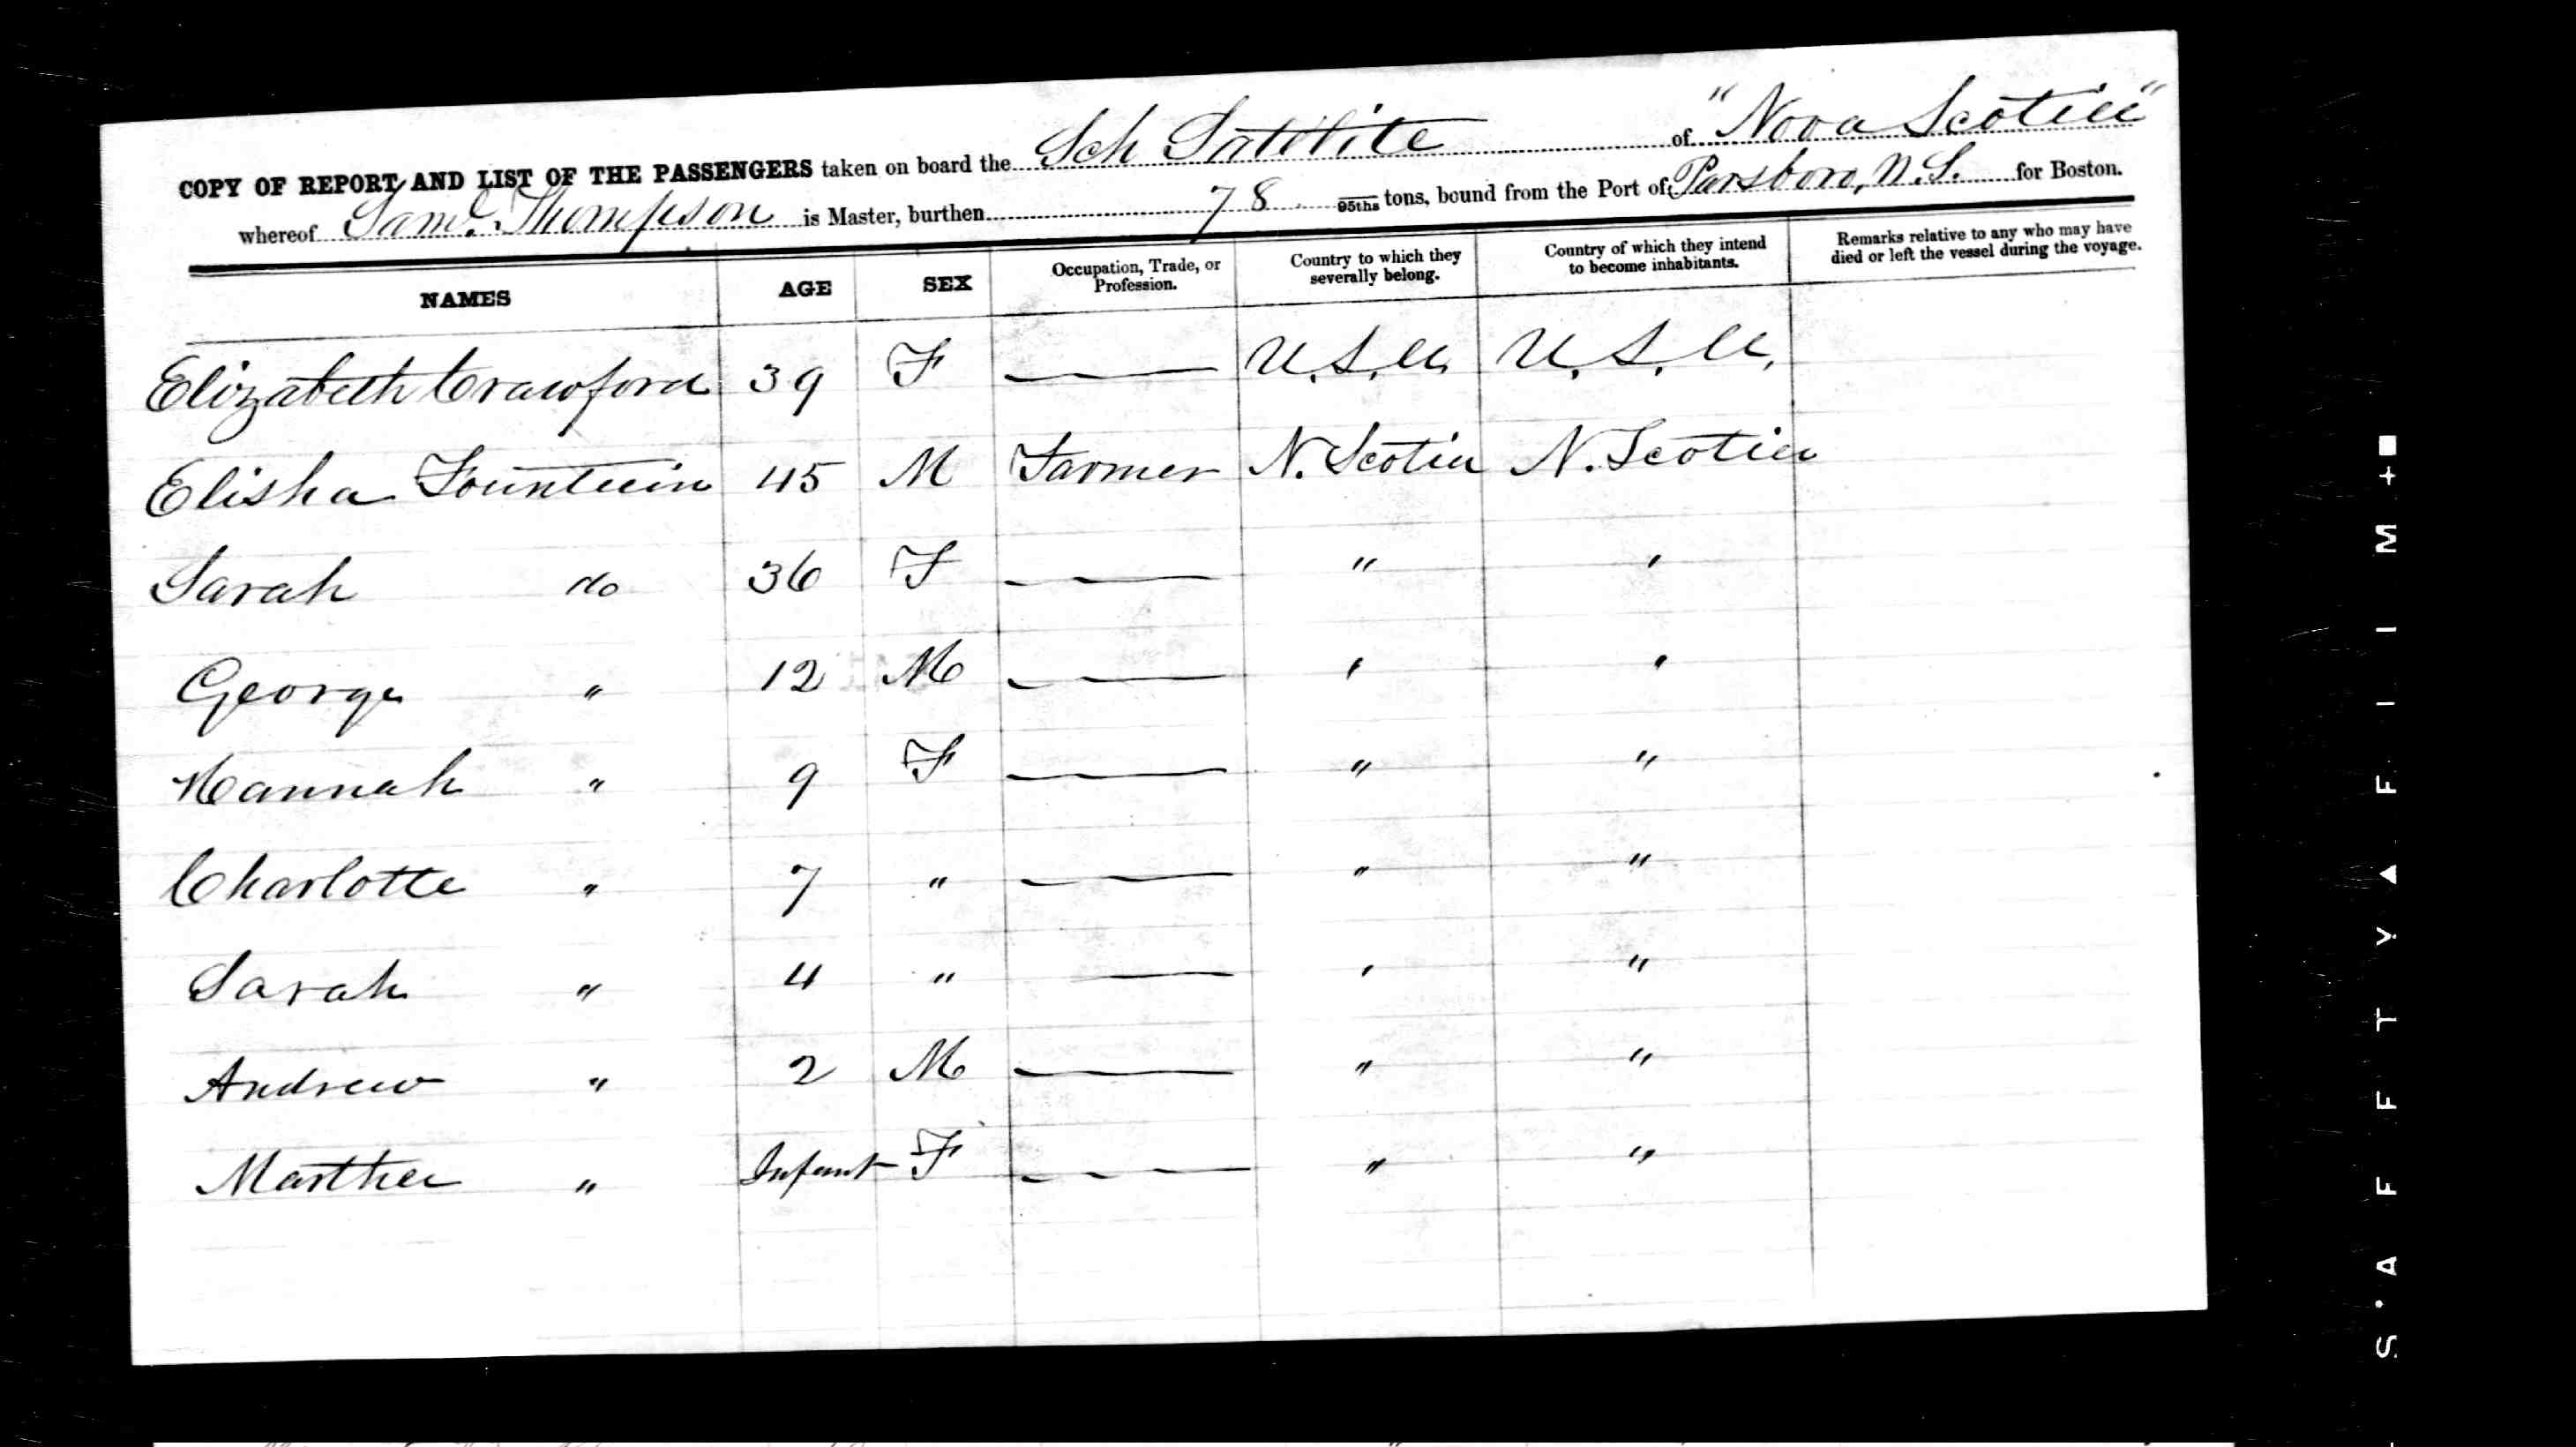 COPY OF REPORT AND LIST OF THE PASSENGERS taken on board the Sch Satelite of "Nova Scotia"
whereof Saml. Thompson is Master, burthen 78 95ths tons, bound from the Port of Parsboro, N.S. for Boston.
NAMES AGE SEX Occupation, Trade, or Profession. Country to which they severally belong. Country of which they intend to become inhabitants. Remarks relative to any who may have died or left the vessel during the voyage.
Elizabeth Crawford 39 F — U.S.A. U.S.A.
Elisha Fountain 45 M Farmer N. Scotia N. Scotia
Sarah do 36 F — " "
George " 12 M — " "
Hannah " 9 F — " "
Charlotte " 7 " — " "
Sarah " 4 " — " "
Andrew " 2 M — " "
Marthea " Infant F — " "
SAFETY FILM